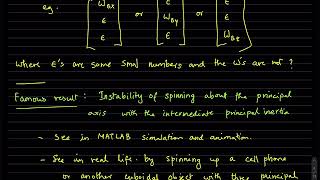 eg. [ωBx ε ε] or [ε ωBy ε] or [ε ε ωBz]
where ε's are some small numbers and the ω's are not ?
Famous result : Instability of spinning about the principal
axis with the intermediate principal inertia
- See in MATLAB simulation and animation.
- See in real life. by spinning up a cell phone
or another cuboidal object with three principal